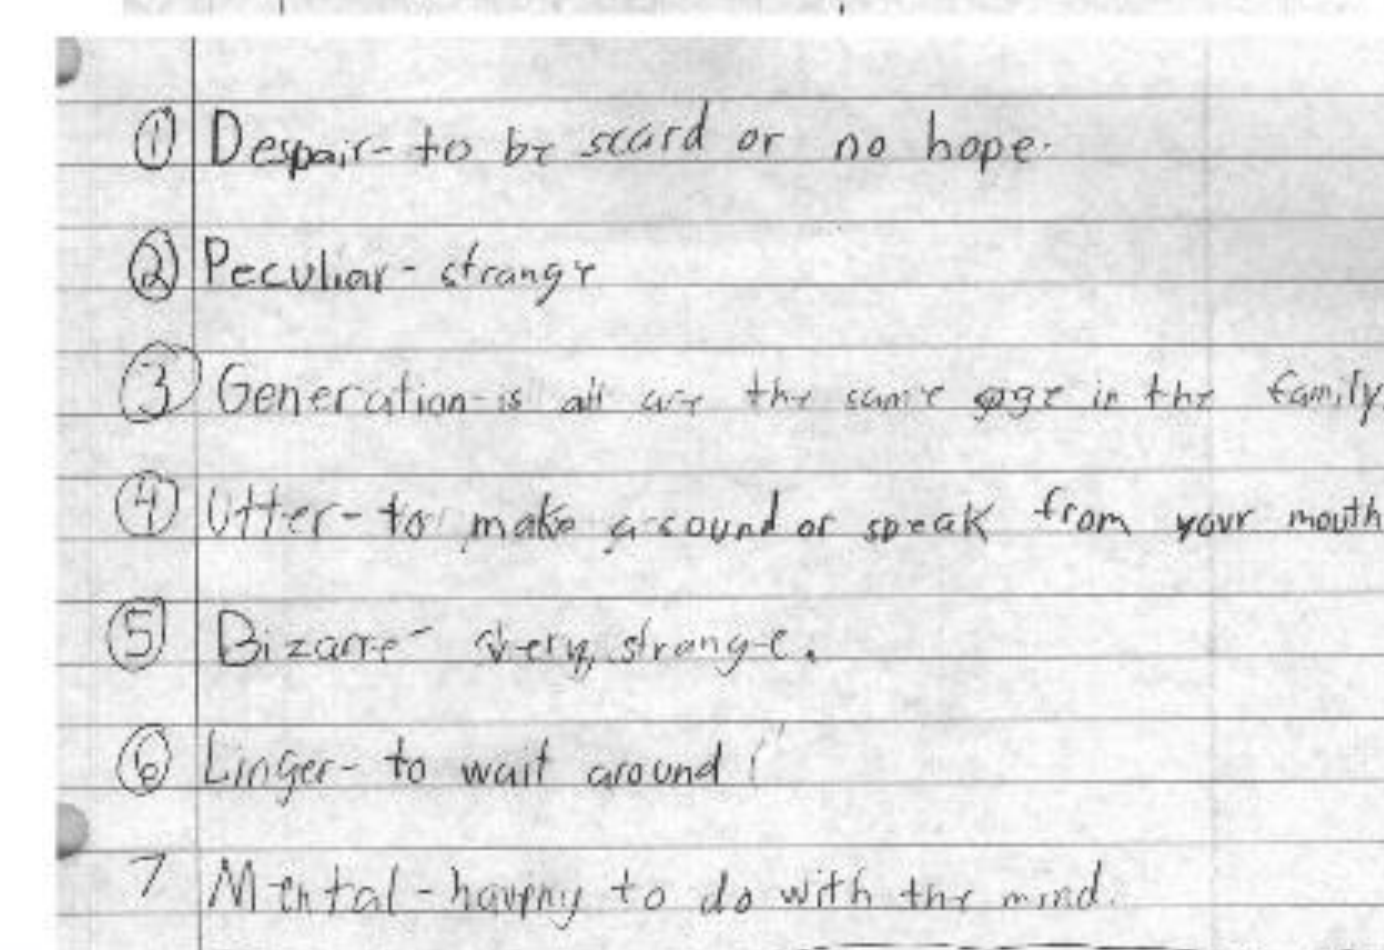 ① Despair- to be scard or no hope.
② Peculiar- strange
③ Generation-is all are the same age in the family.
④ Utter- to make a sound or speak from your mouth
⑤ Bizarre- very, strange.
⑥ Linger- to wait around
7 Mental- having to do with the mind.